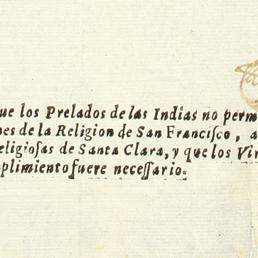 ue los Prelados de las Indias no perm
nes de la Religion de San Francisco, a
eligiosas de Santa Clara, y que los Vir
plimiento fuere necessario.